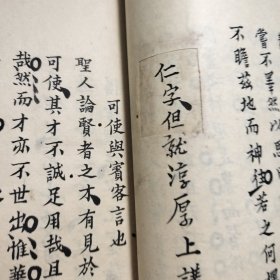 嘗不
不贍茲地而神
若之何
仁字但就淳厚上講
可使與賓客言也
聖人論賢者之才有見於
可使其才不誠足用哉且
哉然而才亦不世出惟華